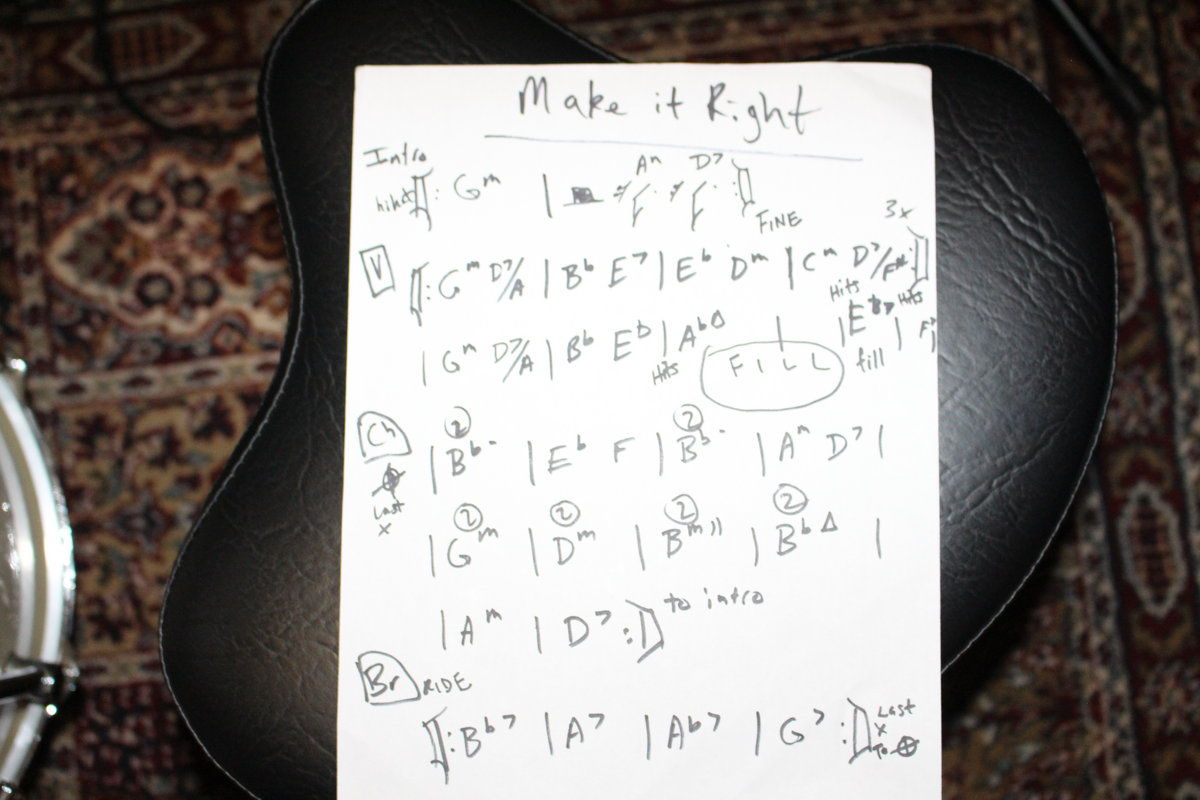 Make it Right
Intro
Am D7
hihat 𝄆 Gm | 𝄼 𝄾 𝄾 𝄇
FINE
3x
V 𝄆 Gm D7/A | Bb E7 | Eb Dm | Cm D7/F# 𝄇
Hits Hits
| Gm D7/A | Bb Eb | AbΔ | | E | F7
Hits FILL fill
② ②
Ch | Bb | Eb F | Bb | Am D7 |
Last
x
② ② ② ②
| Gm | Dm | Bm11 | BbΔ |
| Am | D7 𝄇 to intro
Br RIDE
𝄆 Bb7 | A7 | Ab7 | G7 𝄇 Last
x
To 𝄌